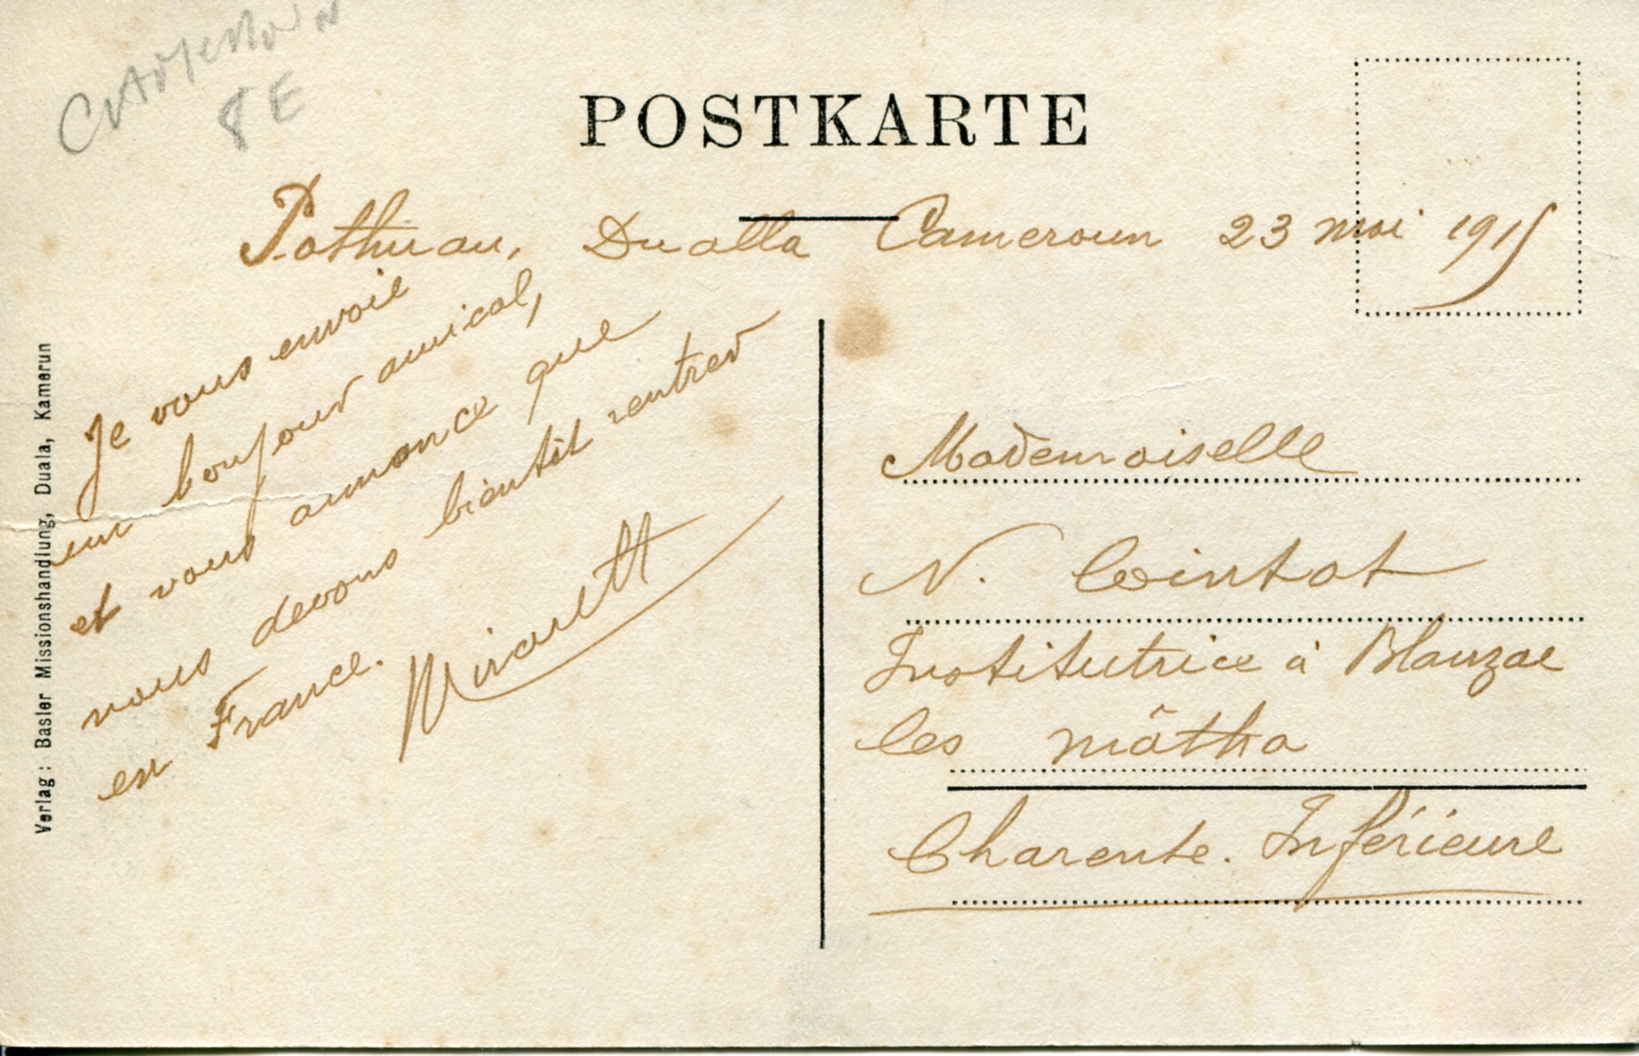 CAMEROUN
8 E
POSTKARTE
Pothuau, Dualla Cameroun 23 mai 1915
Je vous envoie
un bonjour amical,
et vous annonce que
nous devons bientôt rentrer
en France.
Mademoiselle
N. Cointot
Institutrice à Blanzac
les mâtha
Charente. Inférieure
Verlag: Basler Missionshandlung, Duala, Kamerun